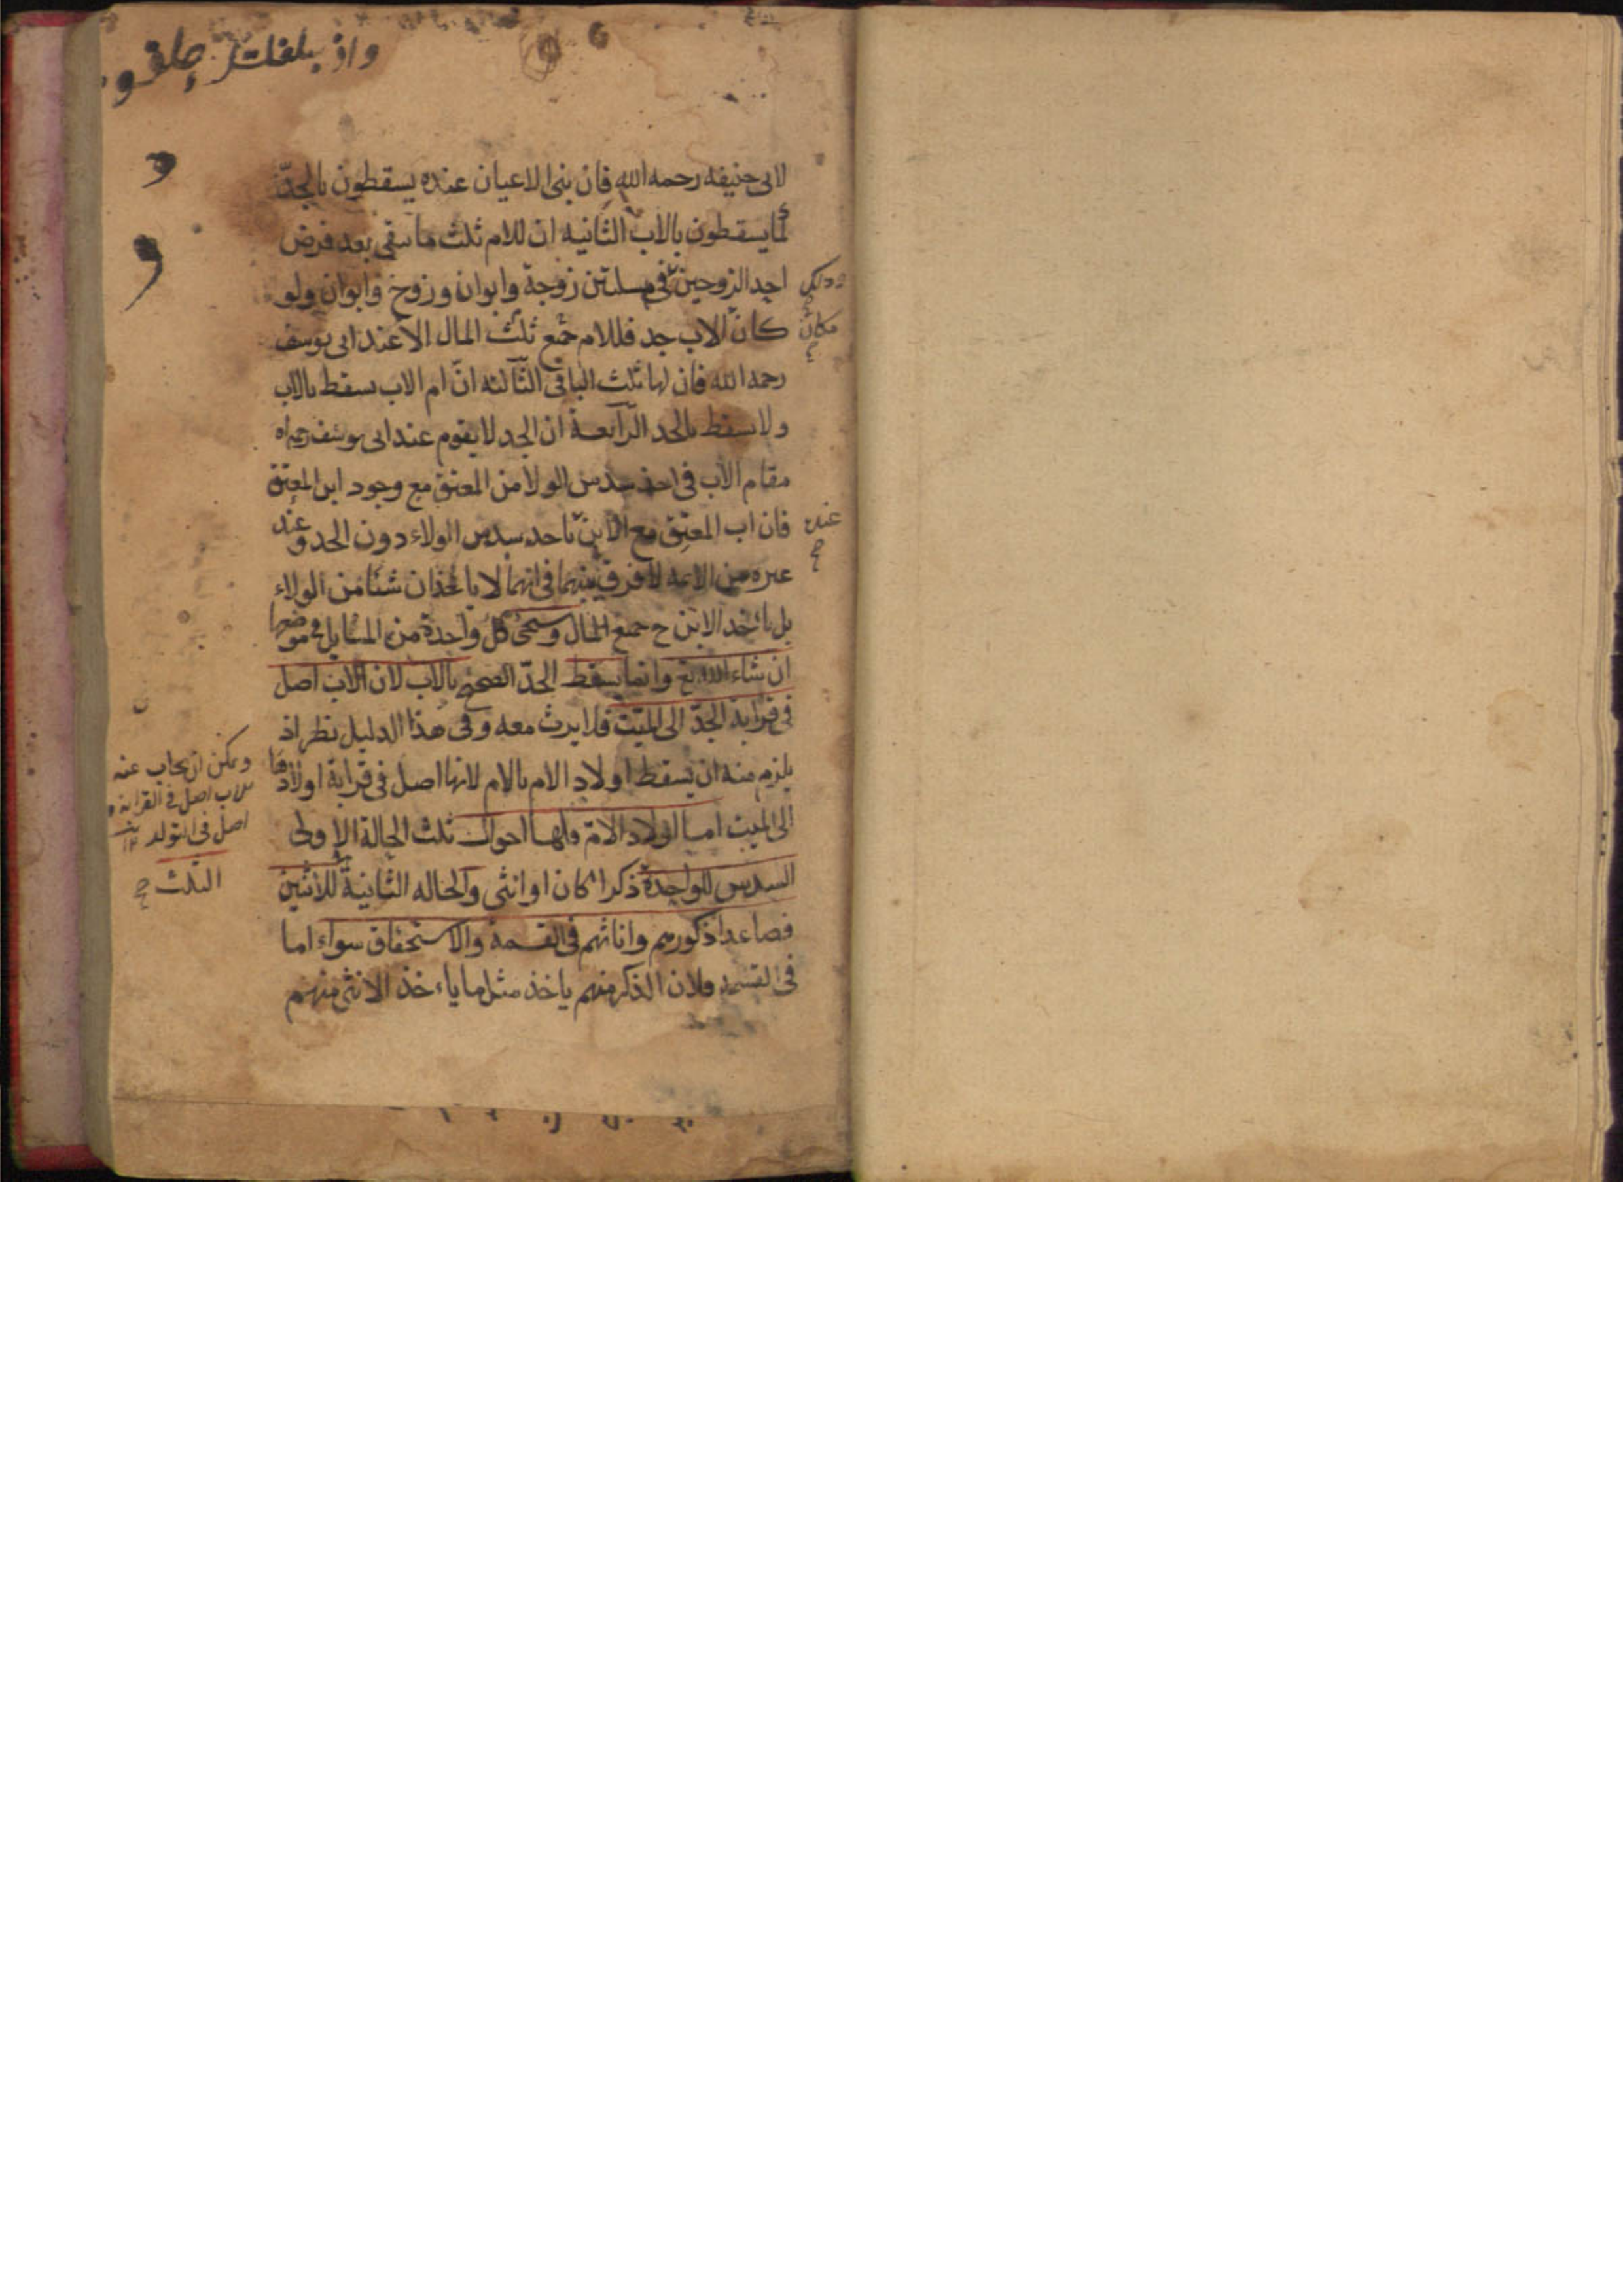 لابى حنيفه رحمه الله فان بنى الاعيان عنده يسقطون بالجدّ
كما يسقطون بالاب الثانيه ان للام ثلث ما بقى بعد فرض
احد الزوجين فى مسلتين زوجة وابوان وزوج وابوان ولو
وذلك
كان الاب جد فللام جميع ثلث المال الا عند ابى يوسف
مكان
رحمه الله فان لها ثلث الباقى الثالثه انّ ام الاب يسقط بالاب
ولا يسقط بالجد الرابعة ان الجد لا يقوم عند ابى يوسف رحمه اه
مقام الاب فى اخذ سدس الولا من المعتق مع وجود ابن المعتق
فان اب المعتق مع الابن ياخذ سدس الولاء دون الجد وعند
عنده
غيره من الائمه لا فرق بينهما فى انهما لا ياخذان شيئا من الولاء
بل ياخذ الابن ح جميع المال وسيجئ كل واحدة من المسايل فى موضعها
ان شاء الله تع وانما يسقط الجدّ الصحيح بالاب لان الاب اصل
فى قرابة الجدّ الى الميّت فلا يرث معه وفى هذا الدليل نظر اذ
يلزم منه ان يسقط اولاد الام بالام لانها اصل فى قرابة اولادها
ويمكن ان يجاب عنه
للاب اصل فى القرابة و
اصل فى التولد ١٢
الى الميت اما اولاد الامّ فلها احوال ثلث الحالة الاولى
السدس للواحدة ذكرا كان او انثى والحاله الثانية للاثنين
الثلث
فصاعدا ذكورهم واناثهم فى القسمة والاستحقاق سواء اما
فى القسمه فلان الذكر منهم ياخذ مثل ما ياءخذ الانثى منهم